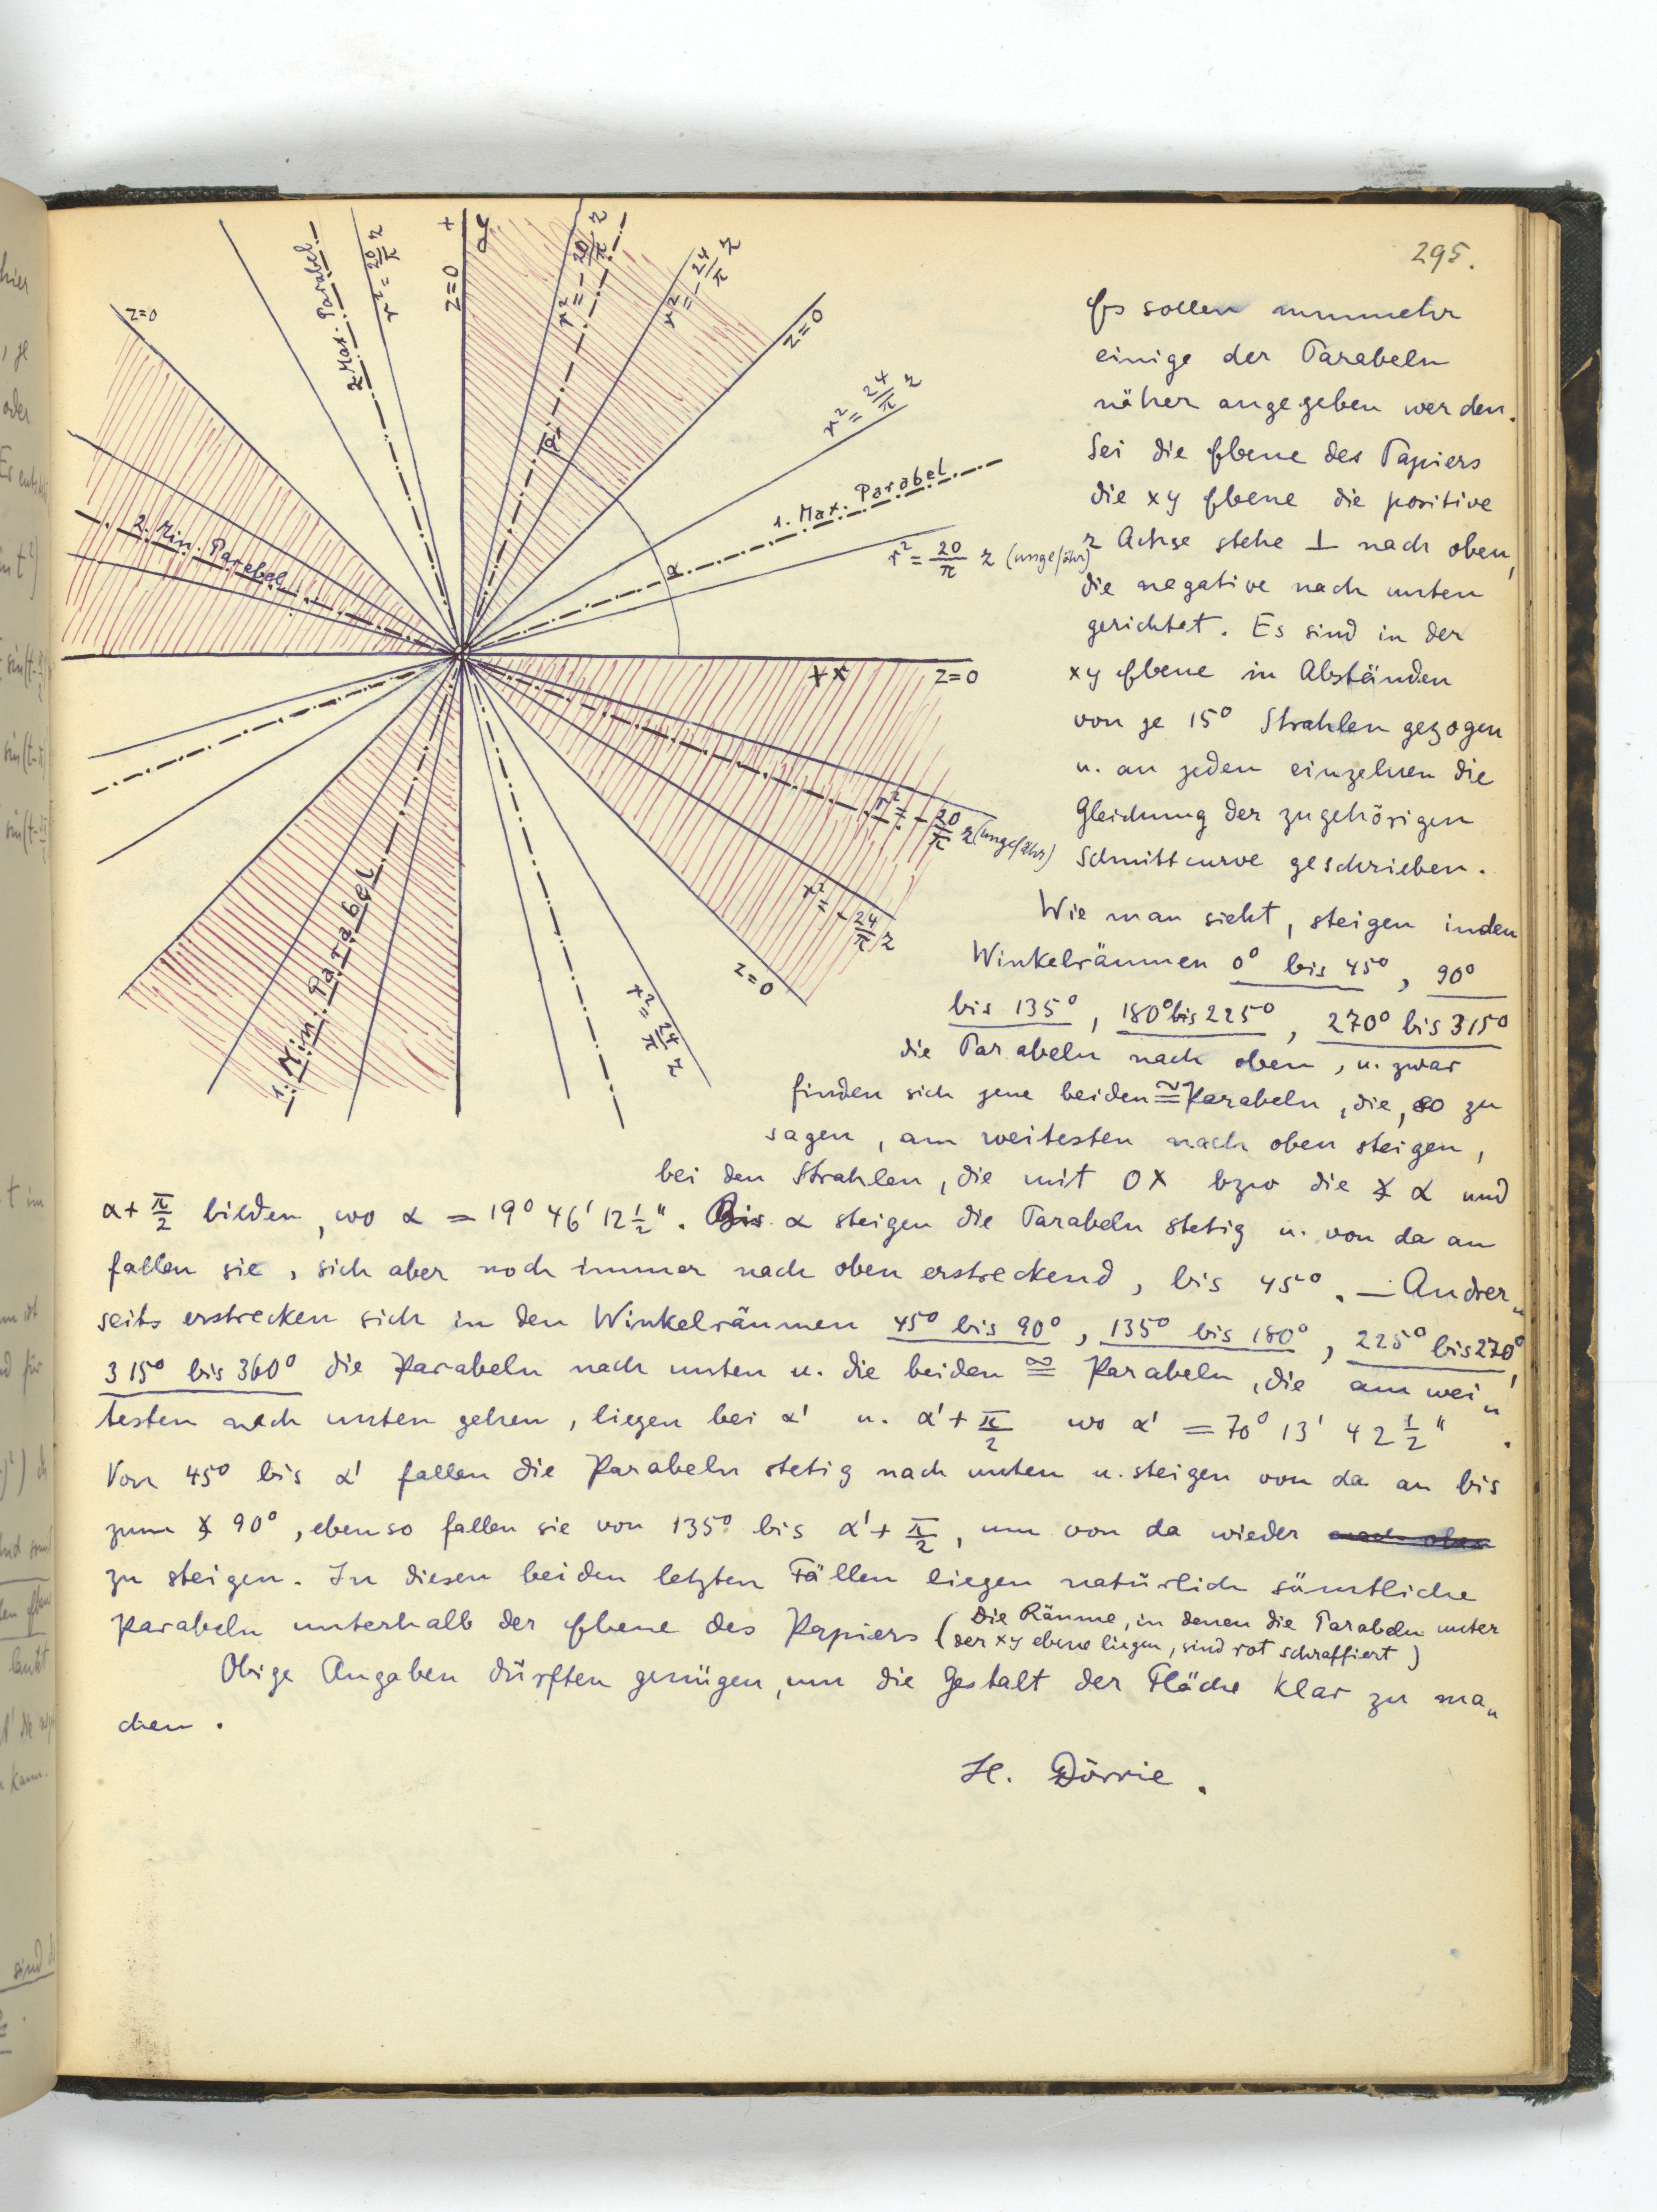 295.
z=0
2. Max. Parabel
r² = 20/π z
+
y
z=0
r² = - 20/π z
r² = - 24/π z
z=0
r² = 24/π z
1. Max. Parabel
r² = 20/π z (ungefähr)
α'
α
2. Min. Parabel
+x
z=0
r² = - 20/π z (ungefähr)
r² = - 24/π z
z=0
r² = 24/π z
1. Min. Parabel
Es sollen nunmehr
einige der Parabeln
näher angegeben werden.
Sei die Ebene des Papiers
die xy Ebene die positive
z Achse stehe ⊥ nach oben,
die negative nach unten
gerichtet. Es sind in der
xy Ebene in Abständen
von je 15° Strahlen gezogen
u. an jeden einzelnen die
Gleichung der zugehörigen
Schnittcurve geschrieben.
Wie man sieht, steigen in den
Winkelräumen 0° bis 45°, 90°
bis 135°, 180° bis 225°, 270° bis 315°
die Parabeln nach oben, u. zwar
finden sich jene beiden ≅ Parabeln, die, so zu
sagen, am weitesten nach oben steigen,
bei den Strahlen, die mit OX bzw die ∡ α und
α + π/2 bilden, wo α = 19° 46' 12 ½". Bis α steigen die Parabeln stetig u. von da an
fallen sie, sich aber noch immer nach oben erstreckend, bis 45°. — Andrer„
seits erstrecken sich in den Winkelräumen 45° bis 90°, 135° bis 180°, 225° bis 270°,
315° bis 360° die Parabeln nach unten u. die beiden ≅ Parabeln, die am wei„
testen nach unten gehen, liegen bei α' u. α' + π/2 wo α' = 70° 13' 42 ½".
Von 45° bis α' fallen die Parabeln stetig nach unten u. steigen von da an bis
zum ∡ 90°, ebenso fallen sie von 135° bis α' + π/2, um von da wieder nach oben
zu steigen. In diesen beiden letzten Fällen liegen natürlich sämtliche
Parabeln unterhalb der Ebene des Papiers (Die Räume, in denen die Parabeln unter
der xy ebene liegen, sind rot schraffiert)
Obige Angaben dürften genügen, um die Gestalt der Fläche klar zu ma„
chen.
H. Dörrie.